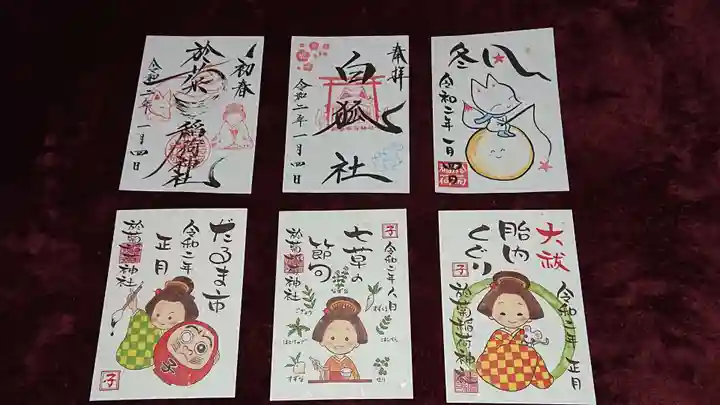 初春
於菊稲荷神社
令和二年一月四日
奉拝
白狐社
令和二年一月四日
冬
令和二年一月四日
だるま市
令和二年
正月
於菊稲荷神社
子
子
令和二年
七草の
節句
於菊稲荷神社
なずな
ごぎょう
すずしろ
はこべら
すずな
せり
大祓
胎内
くぐり
子
令和二年正月
於菊稲荷神社